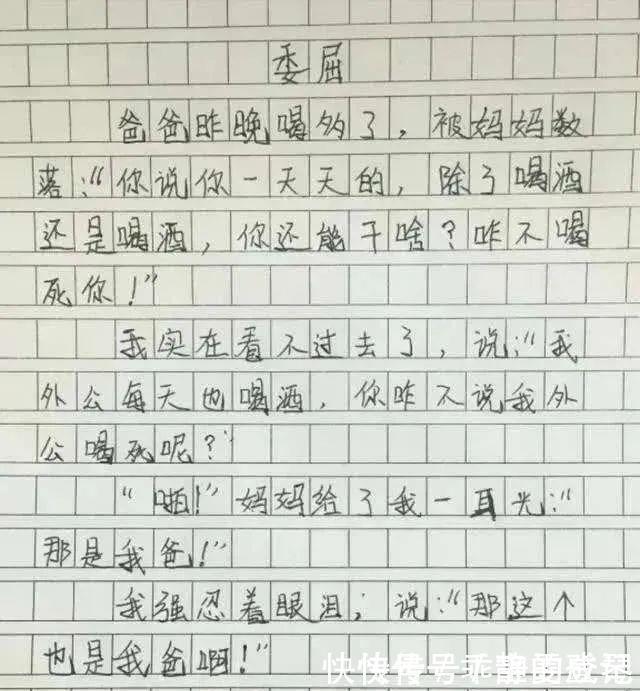 委屈
爸爸昨晚喝多了，被妈妈数
落：“你说你一天天的，除了喝酒
还是喝酒，你还能干啥？咋不喝
死你！”
我实在看不过去了，说：“我
外公每天也喝酒，你咋不说我外
公喝死呢？”
“啪！”妈妈给了我一耳光：“
那是我爸！”
我强忍着眼泪；说：“那这个
也是我爸啊！”